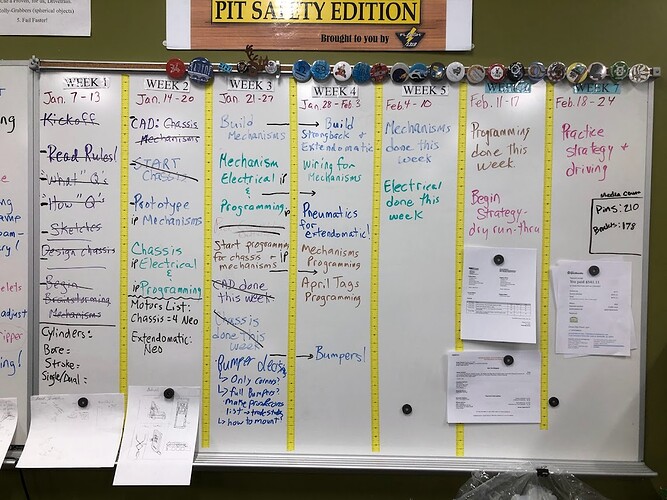 5. Fail Faster!
PIT SAFETY EDITION
Brought to you by
WEEK 1
Jan. 7-13
Kickoff
Read Rules!
"What" Q's
"How" Q's
Sketches
Design chassis
Begin
Brainstorming
Mechanisms
Cylinders:
Bore:
Stroke:
Single/Dual:
WEEK 2
Jan. 14-20
CAD: Chassis
Mechanisms
START
Chassis
Prototype
IP Mechanisms
Chassis
IP Electrical
&
IP Programming
Motors List:
Chassis = 4 Neo
Extendomatic:
Neo
WEEK 3
Jan. 21-27
Build
Mechanisms
Mechanism
Electrical IP
&
Programming IP
Start programming
for chassis + IP
mechanisms
CAD done
this week
Chassis
done this
week
Bumper
↳ Only corners?
↳ full Bumpers?
make
list →
↳ how to mount?
WEEK 4
Jan. 28-Feb. 3
Build
Strongback +
Extendomatic
Wiring for
Mechanisms
Pneumatics
for
extendomatic!
Mechanisms
Programming
April Tags
Programming
Bumpers!
WEEK 5
Feb. 4-10
Mechanisms
done this
week
Electrical
done this
week
Feb. 11-17
Programming
done this
week
Begin
Strategy-
dry run-thru
WEEK 7
Feb. 18-24
Practice
strategy +
driving
Media Count
Pins: 210